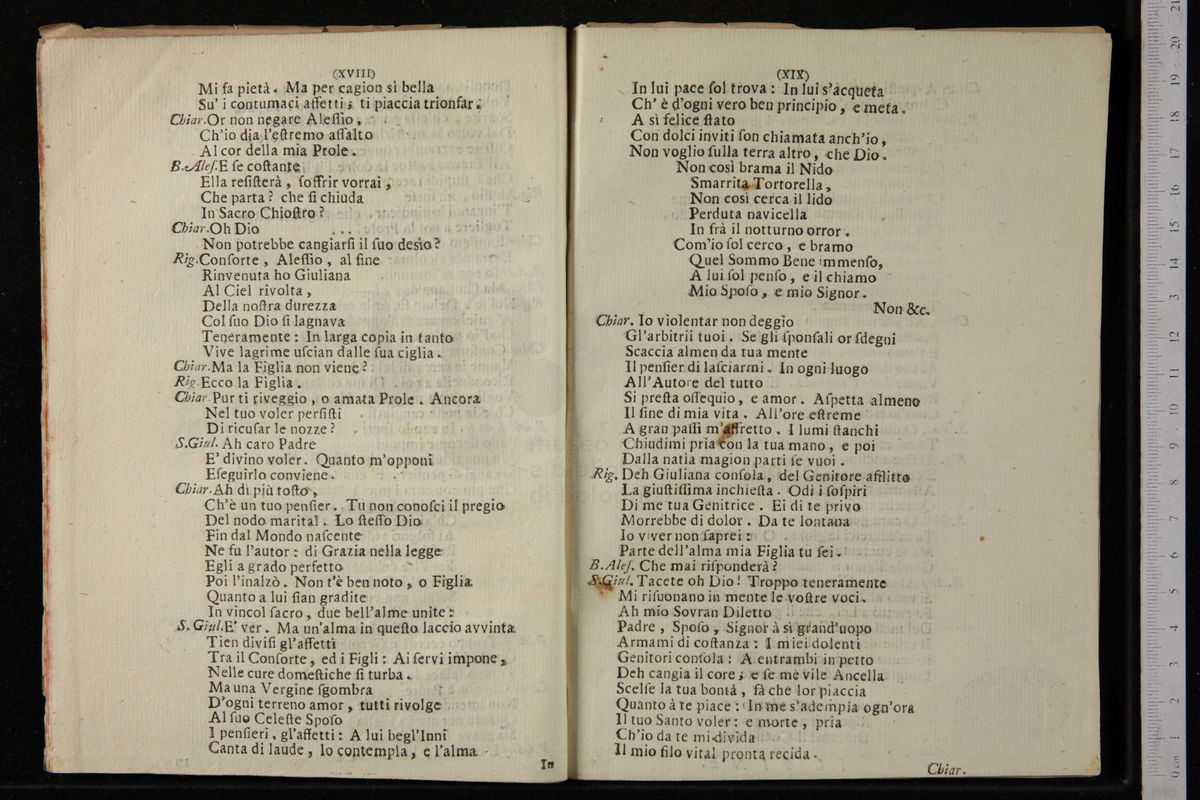 (XVIII)
Mi fa pietà. Ma per cagion sì bella
Su' i contumaci affetti; ti piaccia trionfar.
Chiar. Or non negare Aleſſio,
Ch'io dia l'eſtremo aſſalto
Al cor della mia Prole.
B. Aleſ. E ſe coſtante
Ella reſiſterà, ſoffrir vorrai,
Che parta? che ſi chiuda
In Sacro Chioſtro?
Chiar. Oh Dio ...
Non potrebbe cangiarſi il ſuo desìo?
Rig. Conſorte, Aleſſio, al fine
Rinvenuta ho Giuliana
Al Ciel rivolta,
Della noſtra durezza
Col ſuo Dio ſi lagnava
Teneramente: In larga copia in tanto
Vive lagrime uſcian dalle ſua ciglia.
Chiar. Ma la Figlia non viene?
Rig. Ecco la Figlia.
Chiar. Pur ti riveggio, o amata Prole. Ancora
Nel tuo voler perſiſti
Di ricuſar le nozze?
S. Giul. Ah caro Padre
E' divino voler. Quanto m'opponi
Eſeguirlo conviene.
Chiar. Ah di più toſto,
Ch'è un tuo penſier. Tu non conoſci il pregio
Del nodo marital. Lo ſteſſo Dio
Fin dal Mondo naſcente
Ne fu l'autor: di Grazia nella legge
Egli a grado perfetto
Poi l'inalzò. Non t'è ben noto, o Figlia
Quanto a lui ſian gradite
In vincol ſacro, due bell'alme unite:
S. Giul. E' ver. Ma un'alma in queſto laccio avvinta
Tien diviſi gl'affetti
Tra il Conſorte, ed i Figli: Ai ſervi impone,
Nelle cure domeſtiche ſi turba.
Ma una Vergine ſgombra
D'ogni terreno amor, tutti rivolge
Al ſuo Celeſte Spoſo
I penſieri, gl'affetti: A lui begl'Inni
Canta di laude, lo contempla, e l'alma
In
(XIX)
In lui pace ſol trova: In lui s'acqueta
Ch' è d'ogni vero ben principio, e meta.
A sì felice ſtato
Con dolci inviti ſon chiamata anch'io,
Non voglio ſulla terra altro, che Dio.
Non così brama il Nido
Smarrita Tortorella,
Non così cerca il lido
Perduta navicella
In frà il notturno orror.
Com'io ſol cerco, e bramo
Quel Sommo Bene immenſo,
A lui ſol penſo, e il chiamo
Mio Spoſo, e mio Signor.
Non &c.
Chiar. Io violentar non deggio
Gl'arbitrii tuoi. Se gli ſponſali or ſdegni
Scaccia almen da tua mente
Il penſier di laſciarmi. In ogni luogo
All'Autore del tutto
Si preſta oſſequio, e amor. Aſpetta almeno
Il fine di mia vita. All'ore eſtreme
A gran paſſi m'affretto. I lumi ſtanchi
Chiudimi pria con la tua mano, e poi
Dalla natia magion parti ſe vuoi.
Rig. Deh Giuliana conſola, del Genitore afflitto
La giuſtiſſima inchieſta. Odi i ſoſpiri
Di me tua Genitrice. Ei di te privo
Morrebbe di dolor. Da te lontana
Io viver non ſaprei:
Parte dell'alma mia Figlia tu ſei.
B. Aleſ. Che mai riſponderà?
S. Giul. Tacete oh Dio! Troppo teneramente
Mi riſuonano in mente le voſtre voci.
Ah mio Sovran Diletto
Padre, Spoſo, Signor à sì grand'uopo
Armami di coſtanza: I miei dolenti
Genitori conſola: A entrambi in petto
Deh cangia il core; e ſe me vile Ancella
Scelſe la tua bontà, fà che lor piaccia
Quanto à te piace: In me s'adempia ogn'ora
Il tuo Santo voler: e morte, pria
Ch'io da te mi divida
Il mio filo vital pronta recida.
Chiar.